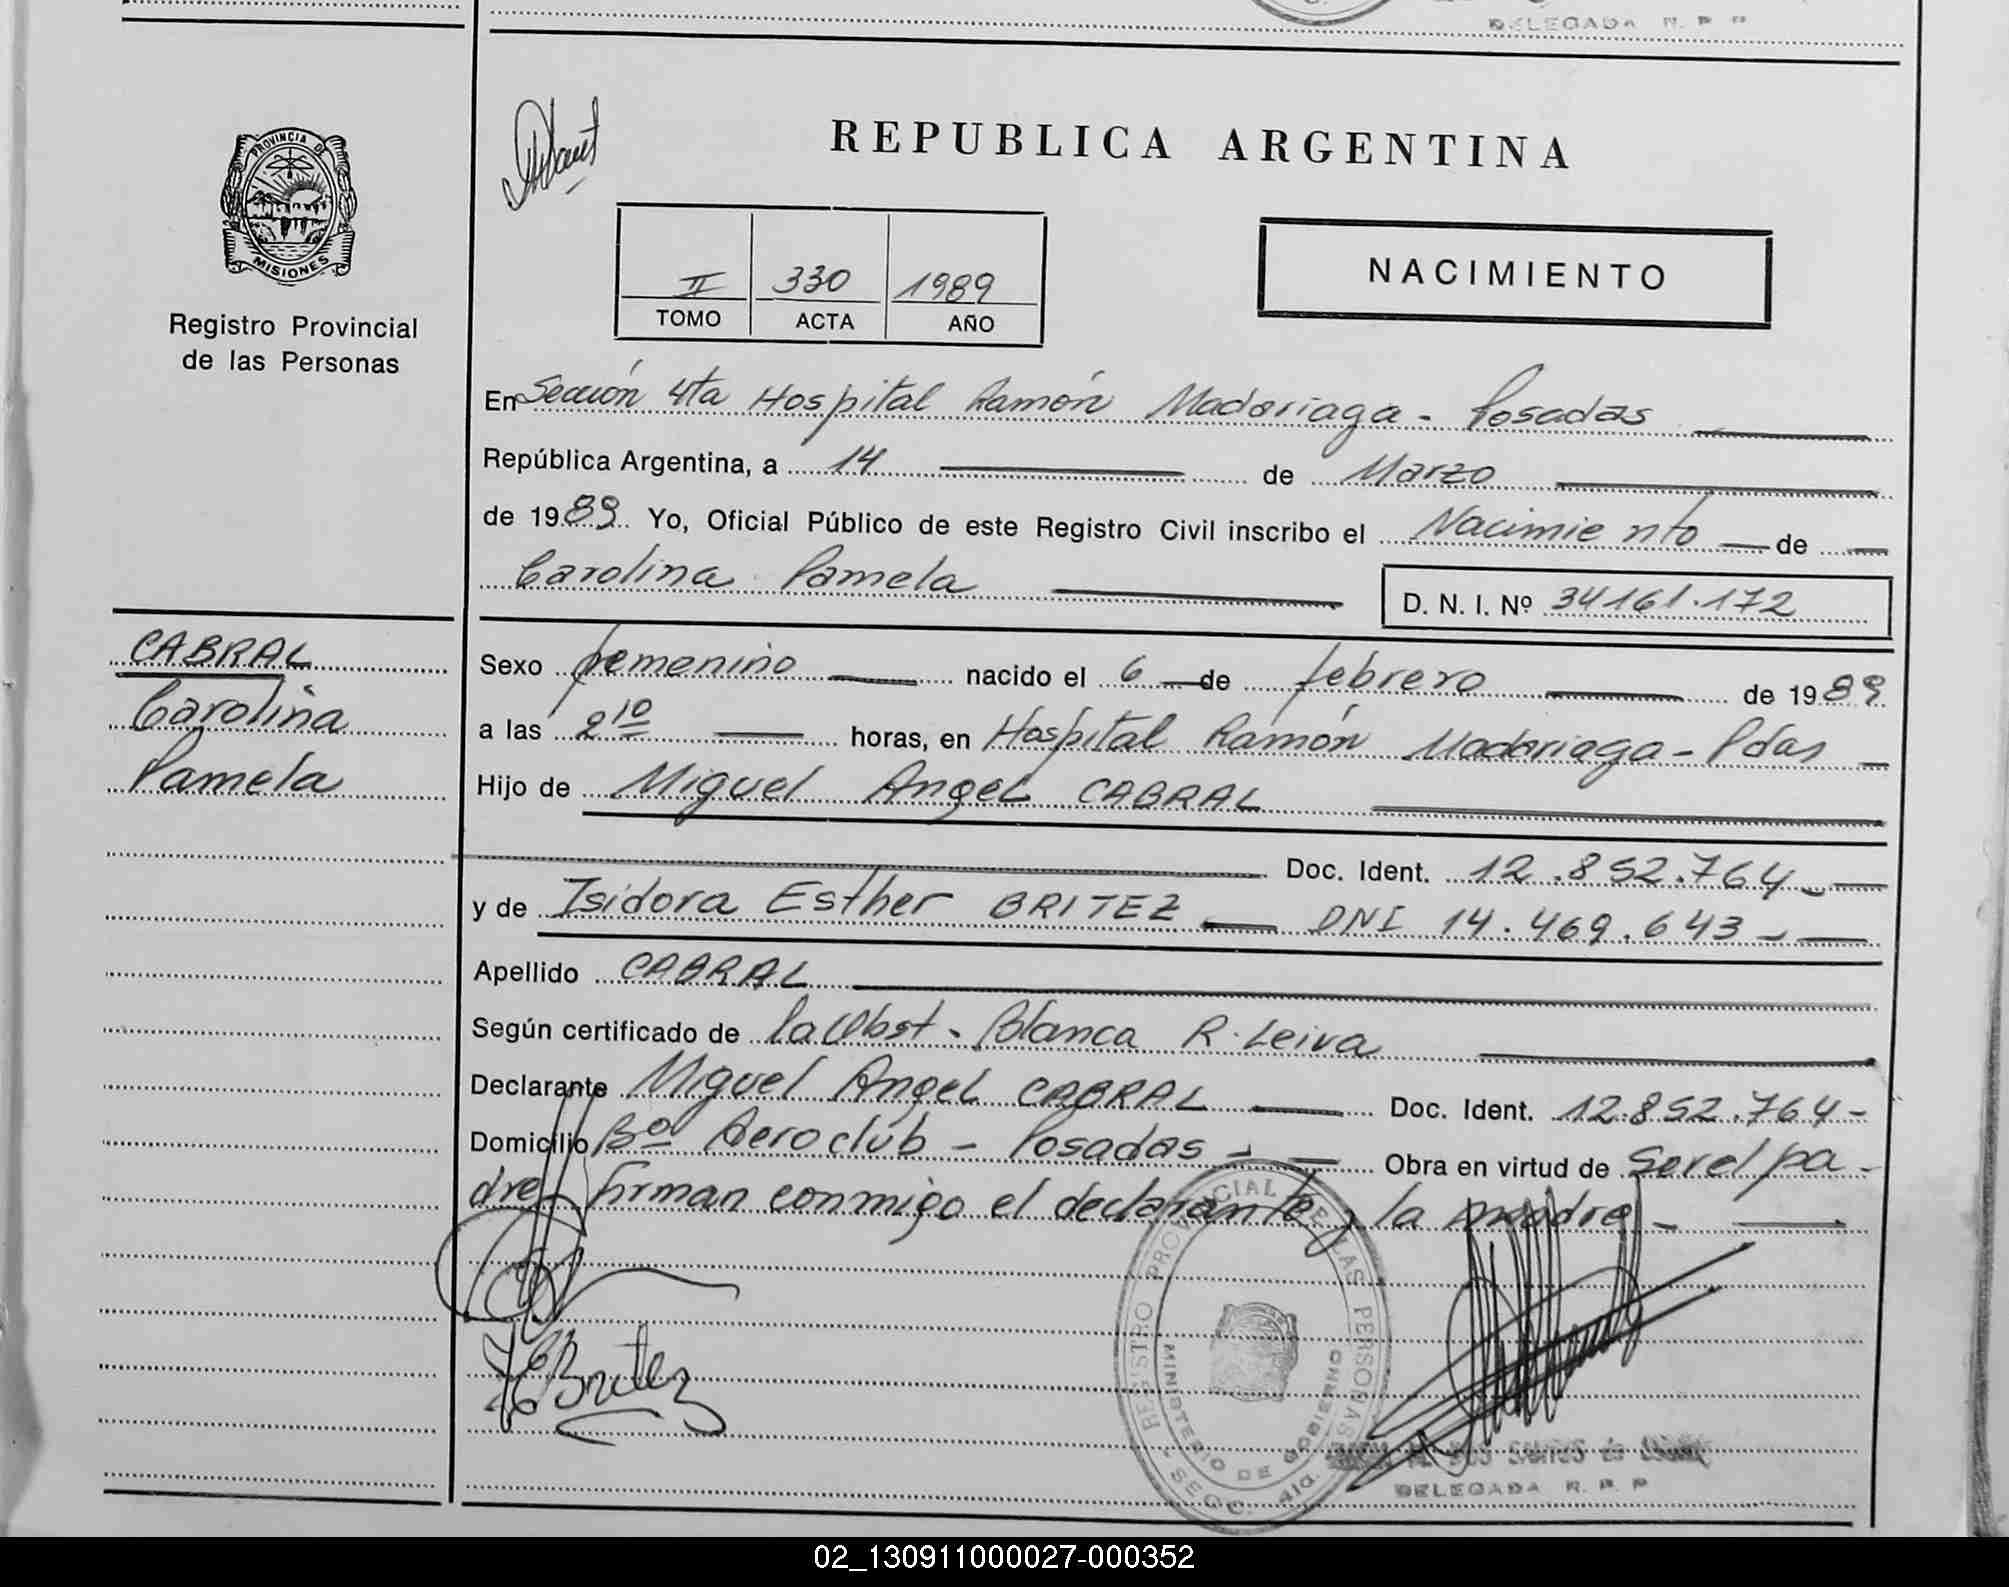 DELEGADA R. P. P.
PROVINCIA DE
MISIONES
Registro Provincial
de las Personas
REPUBLICA ARGENTINA
II 330 1989
TOMO ACTA AÑO
NACIMIENTO
En Sección 4ta Hospital Ramón Madariaga - Posadas
República Argentina, a 14 de Marzo
de 1989. Yo, Oficial Público de este Registro Civil inscribo el Nacimiento de
Carolina Pamela
D. N. I. Nº 34161.172
CABRAL
Carolina
Pamela
Sexo femenino nacido el 6 de febrero de 1989
a las 2 10 horas, en Hospital Ramón Madariaga - Pdas
Hijo de Miguel Angel CABRAL
Doc. Ident. 12.852.764-
y de Isidora Esther BRITEZ DNI 14.469.643-
Apellido CABRAL
Según certificado de la Obst. Blanca R. Leiva
Declarante Miguel Angel CABRAL Doc. Ident. 12.852.764-
Domicilio Bº Aeroclub - Posadas - Obra en virtud de Ser el pa-
dre, firman conmigo el declarante y la madre -
Britez
REGISTRO PROVINCIAL DE LAS PERSONAS
MINISTERIO DE GOBIERNO
SECC. 4ta.
DOS SANTOS de
DELEGADA R. P. P.
02_130911000027-000352